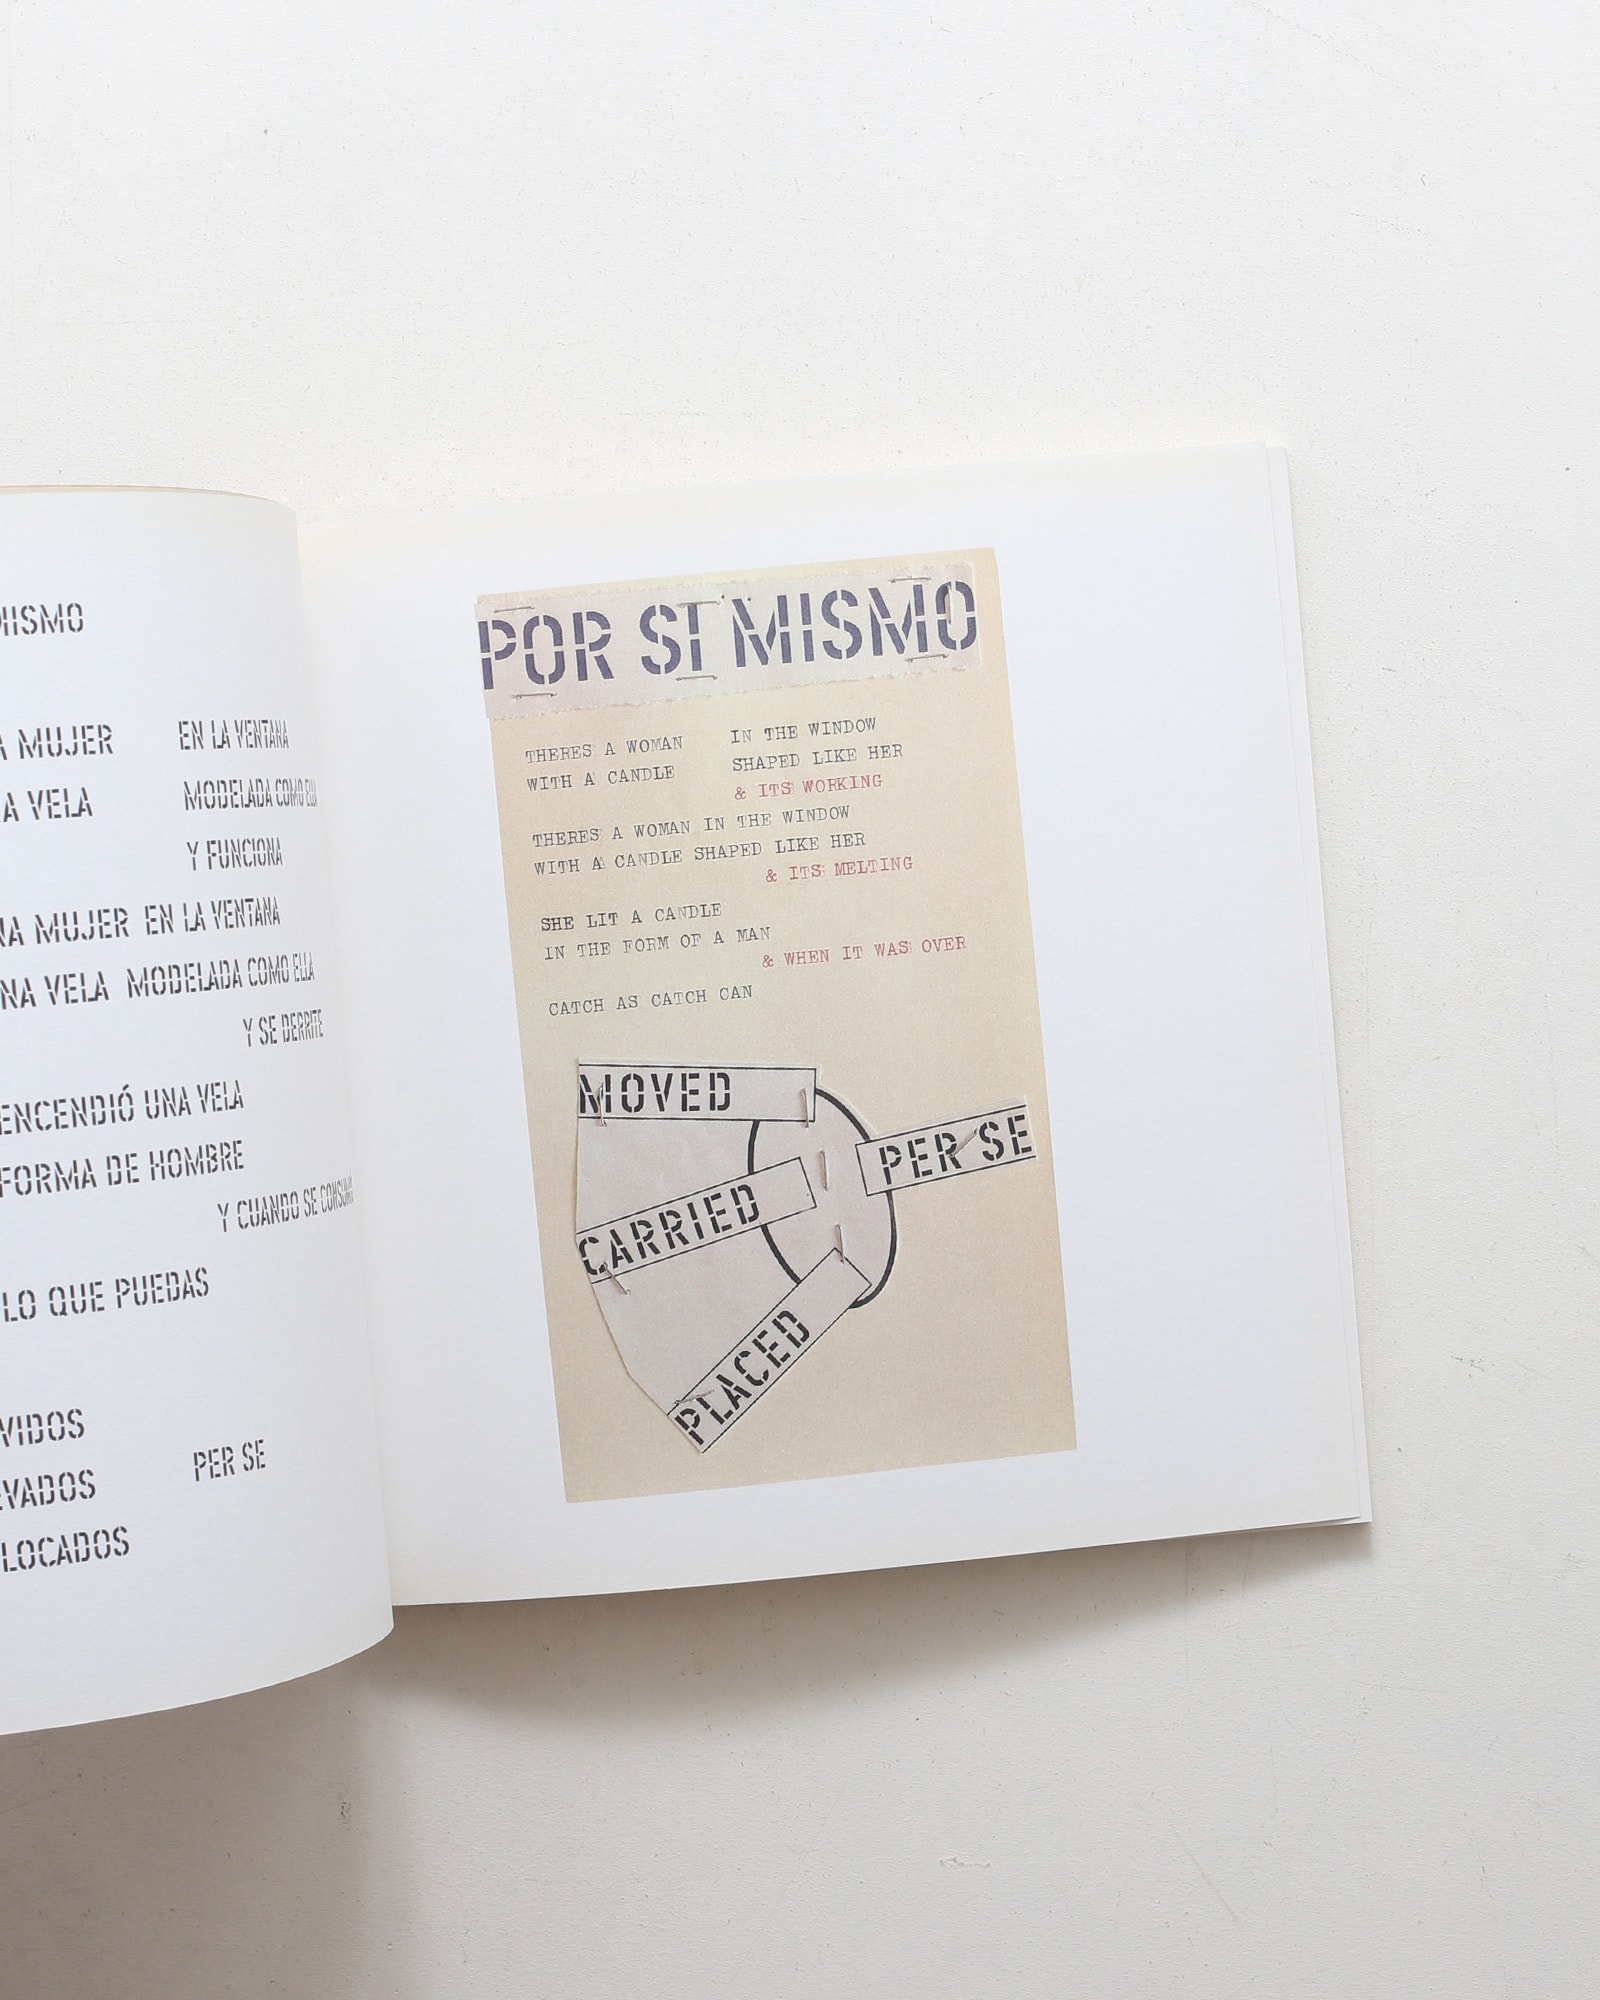 MISMO
MUJER EN LA VENTANA
VELA MODELADA COMO ELLA
Y FUNCIONA
MUJER EN LA VENTANA
VELA MODELADA COMO ELLA
Y SE DERRITE
ENCENDIÓ UNA VELA
FORMA DE HOMBRE
Y CUANDO SE CONSUMA
LO QUE PUEDAS
VIDOS
PER SE
VADOS
LOCADOS
POR SI MISMO
THERES A WOMAN IN THE WINDOW
WITH A CANDLE SHAPED LIKE HER
& ITS WORKING
THERES A WOMAN IN THE WINDOW
WITH A CANDLE SHAPED LIKE HER
& ITS MELTING
SHE LIT A CANDLE
IN THE FORM OF A MAN
& WHEN IT WAS OVER
CATCH AS CATCH CAN
MOVED
PER SE
CARRIED
PLACED